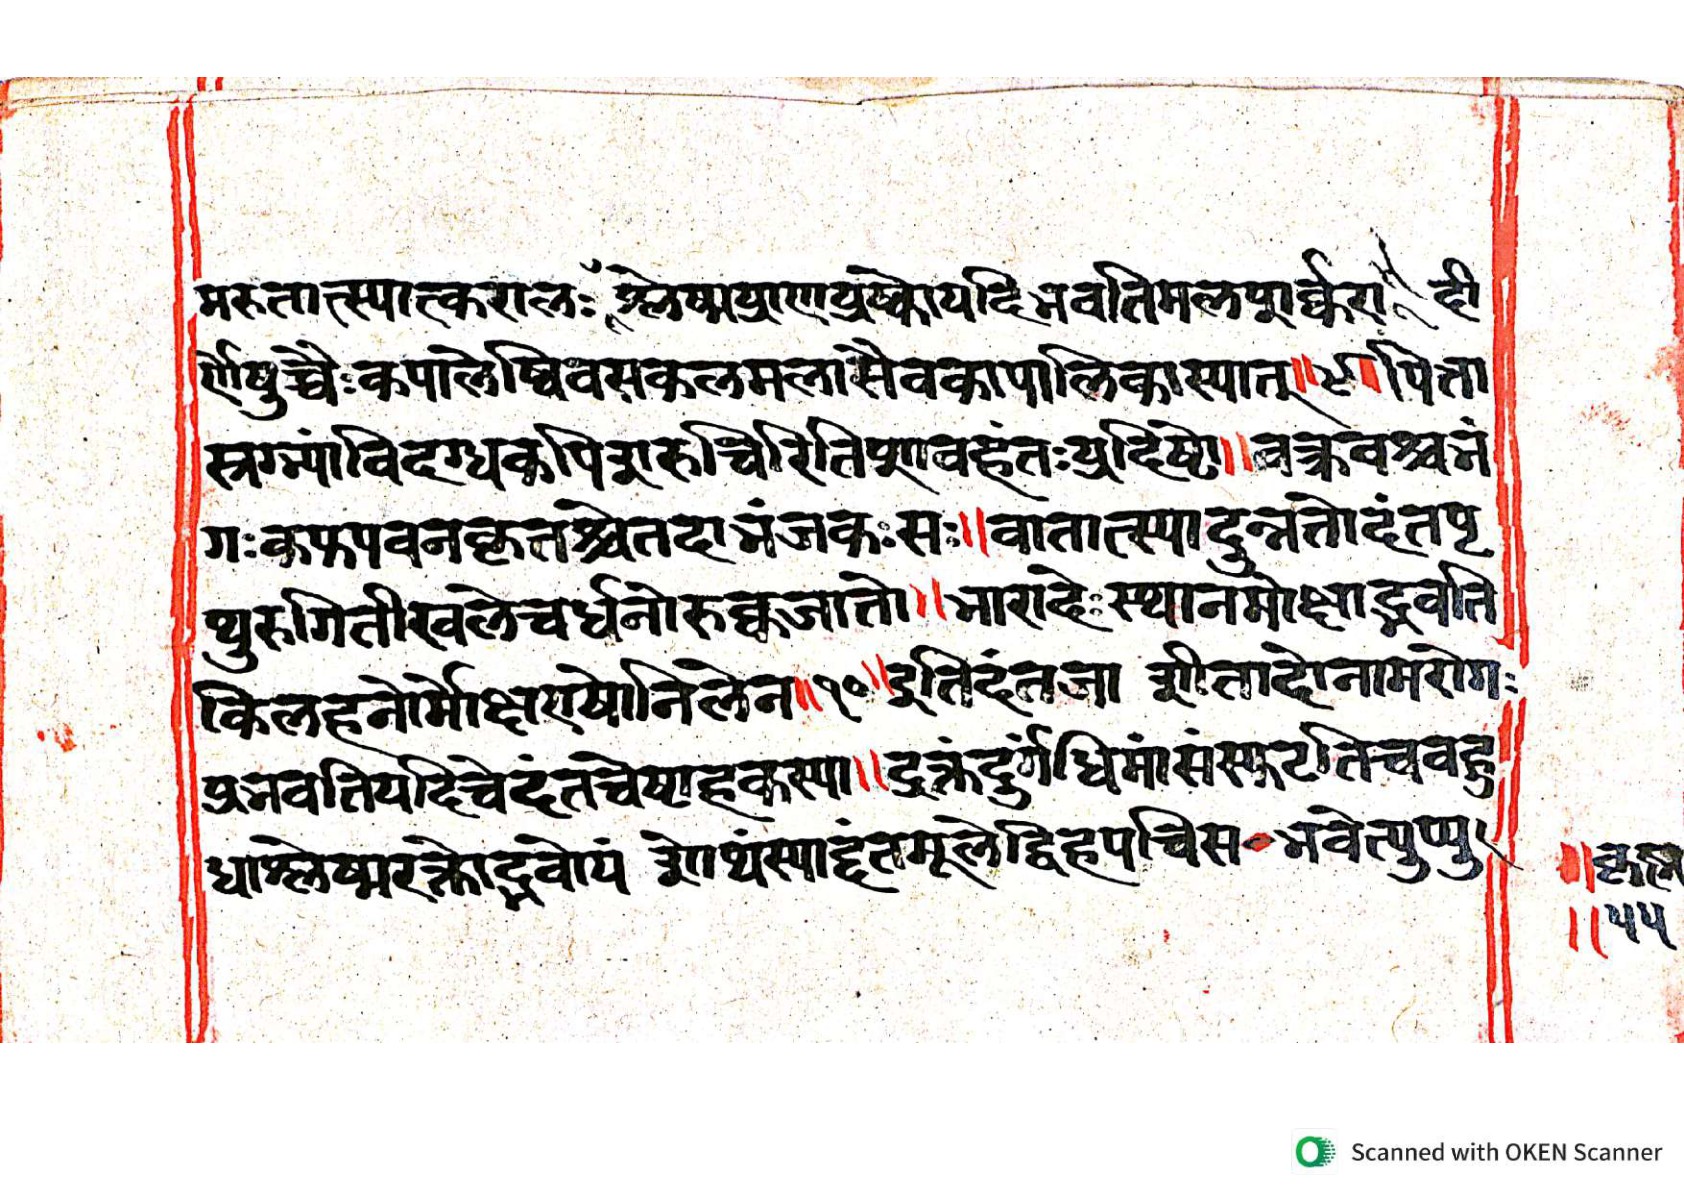 मरुतात्स्यात्करालः श्लेष्मप्राणप्रष्कोयदिभवतिमलपूर्वकरा दी
र्णेषुच्चैःकपालेष्विवसकलमलासैवकापालिकास्यात्॥९॥पित्ता
स्रग्भ्यांविदग्धकपिशरुचिरितिपुणवहंतःप्रदिष्टो॥वक्त्रवश्चभं
गःकफपवनकृतश्चेतदाभंजकःसः॥वातात्स्यादुन्नतोदंतपृ
थुरुगितीखलेचर्धनोरुक्चजातो॥भारादेःस्थानमोक्षाद्भवति
किलहनोर्मोक्षएषोनिलेन॥१०॥इतिदंतजा शीतादोनामरोगः
प्रभवतियदिचेदंतचेष्टाहकस्या॥दुक्तंदुर्गंधिमांसंस्फटतिचवहु
धाश्लेष्मरक्तोद्भवोयं शोथंस्याद्दंतमूलेद्विहपचिस भवेत्युप्पु
॥५५
Scanned with OKEN Scanner